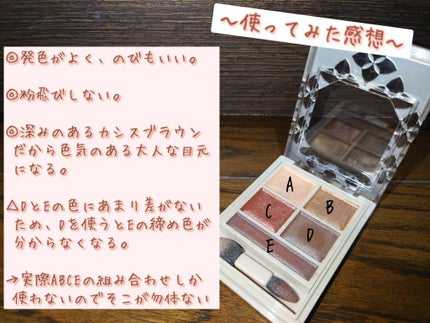 ～使ってみた感想～
◎発色がよく、のびもいい。
◎粉飛びしない。
◎深みのあるカシスブラウン
だから色気のある大人な目元
になる。
△DとEの色にあまり差がない
ため、Dを使うとEの締め色が
分からなくなる。
→実際ABCEの組み合わせしか
使わないのでそこが勿体ない
A
B
C
D
E